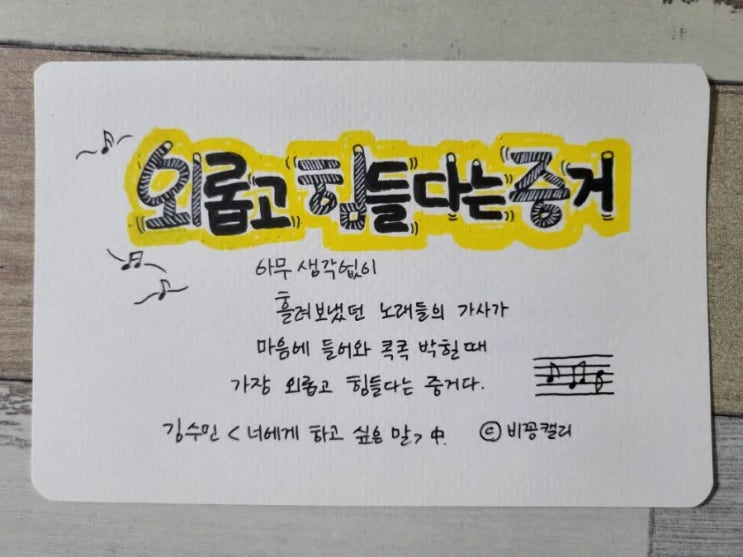 외롭고 힘들다는 증거
아무 생각없이
흘려보냈던 노래들의 가사가
마음에 들어와 콕콕 박힐때
가장 외롭고 힘들다는 증거다.
김수민 < 너에게 하고 싶은 말 > 中.
ⓒ 비꽁캘리